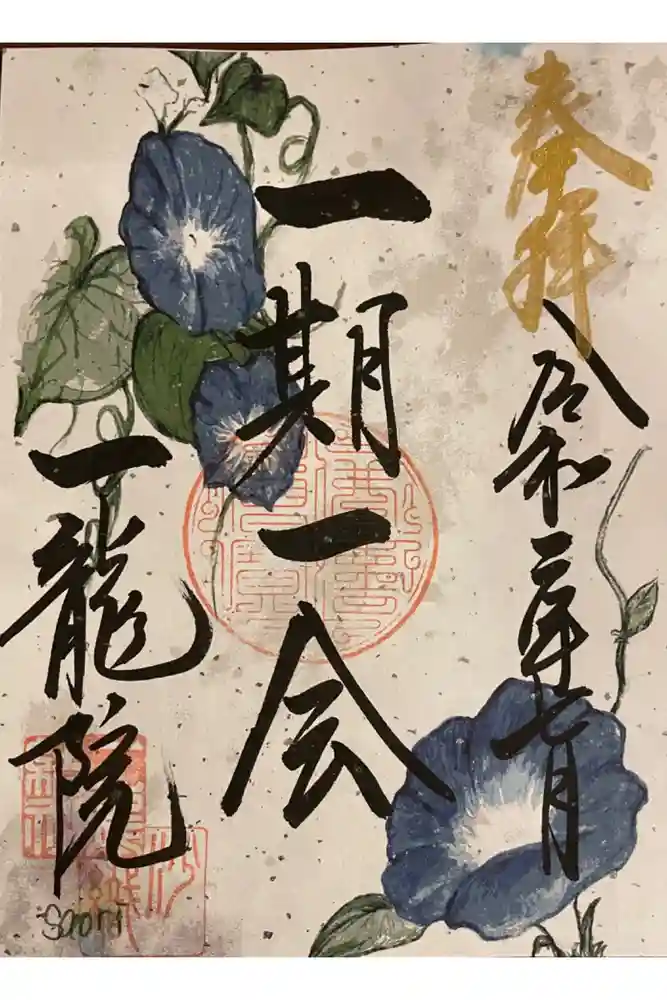 奉拝
令和二年七月
一期一会
一龍院
Saori